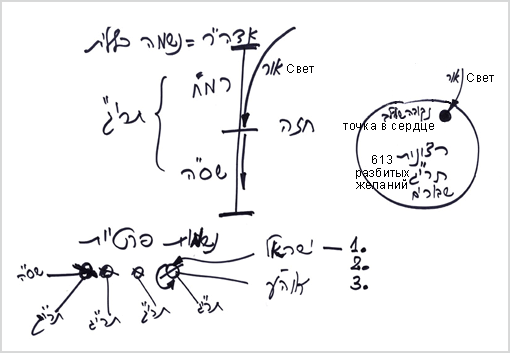 אדה"ר = נשמה כללית
אור Свет
רמ"ח
תרי"ג
חזה
שס"ה
אור Свет
נקודה שבלב
точка в сердце
רצונות
613
разбитых
תרי"ג
желаний
שבורים
נשמות פרטיות
ישראל — 1.
2.
אוה"ע 3.
שס"ה
תרי"ג תרי"ג תרי"ג תרי"ג